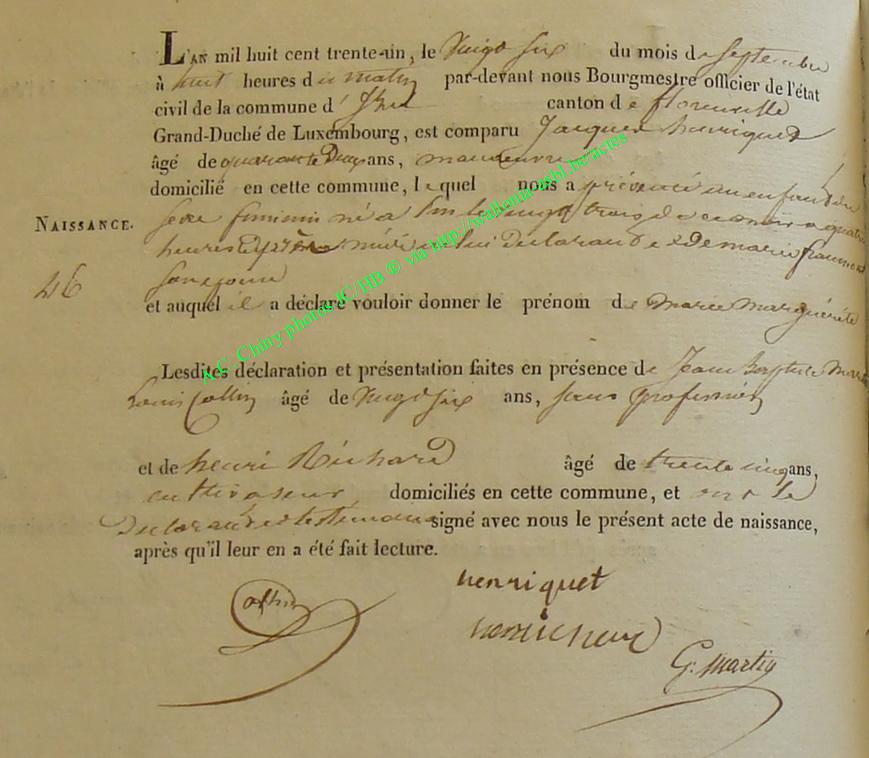 L'AN mil huit cent trente-un, le Vingt Six du mois de Septembre
à huit heures du matin par-devant nous Bourgmestre officier de l'état
civil de la commune d' canton de florenville
Grand-Duché de Luxembourg, est comparu Jacques henriquet
âgé de quarante Deux ans, manoeuvre
domicilié en cette commune, lequel nous a présenté un enfant du
NAISSANCE. Sexe feminin né a le vingt trois de ce mois a quatre
heures lui Declarant et De marie
46
Son epouse
et auquel il a déclaré vouloir donner le prénom de marie marguérite
Lesdites déclaration et présentation faites en présence de Jean baptiste
Louis Collin âgé de Vingt Six ans, sans profession
et de henri Richard âgé de trente cinq ans,
cultivateur, domiciliés en cette commune, et ont le
Declarant et les temoins signé avec nous le présent acte de naissance,
après qu'il leur en a été fait lecture.
Collin henriquet
G. Martin
A.C. Chiny photos IC/HB ® via http://wallonia-asbl.be/actes